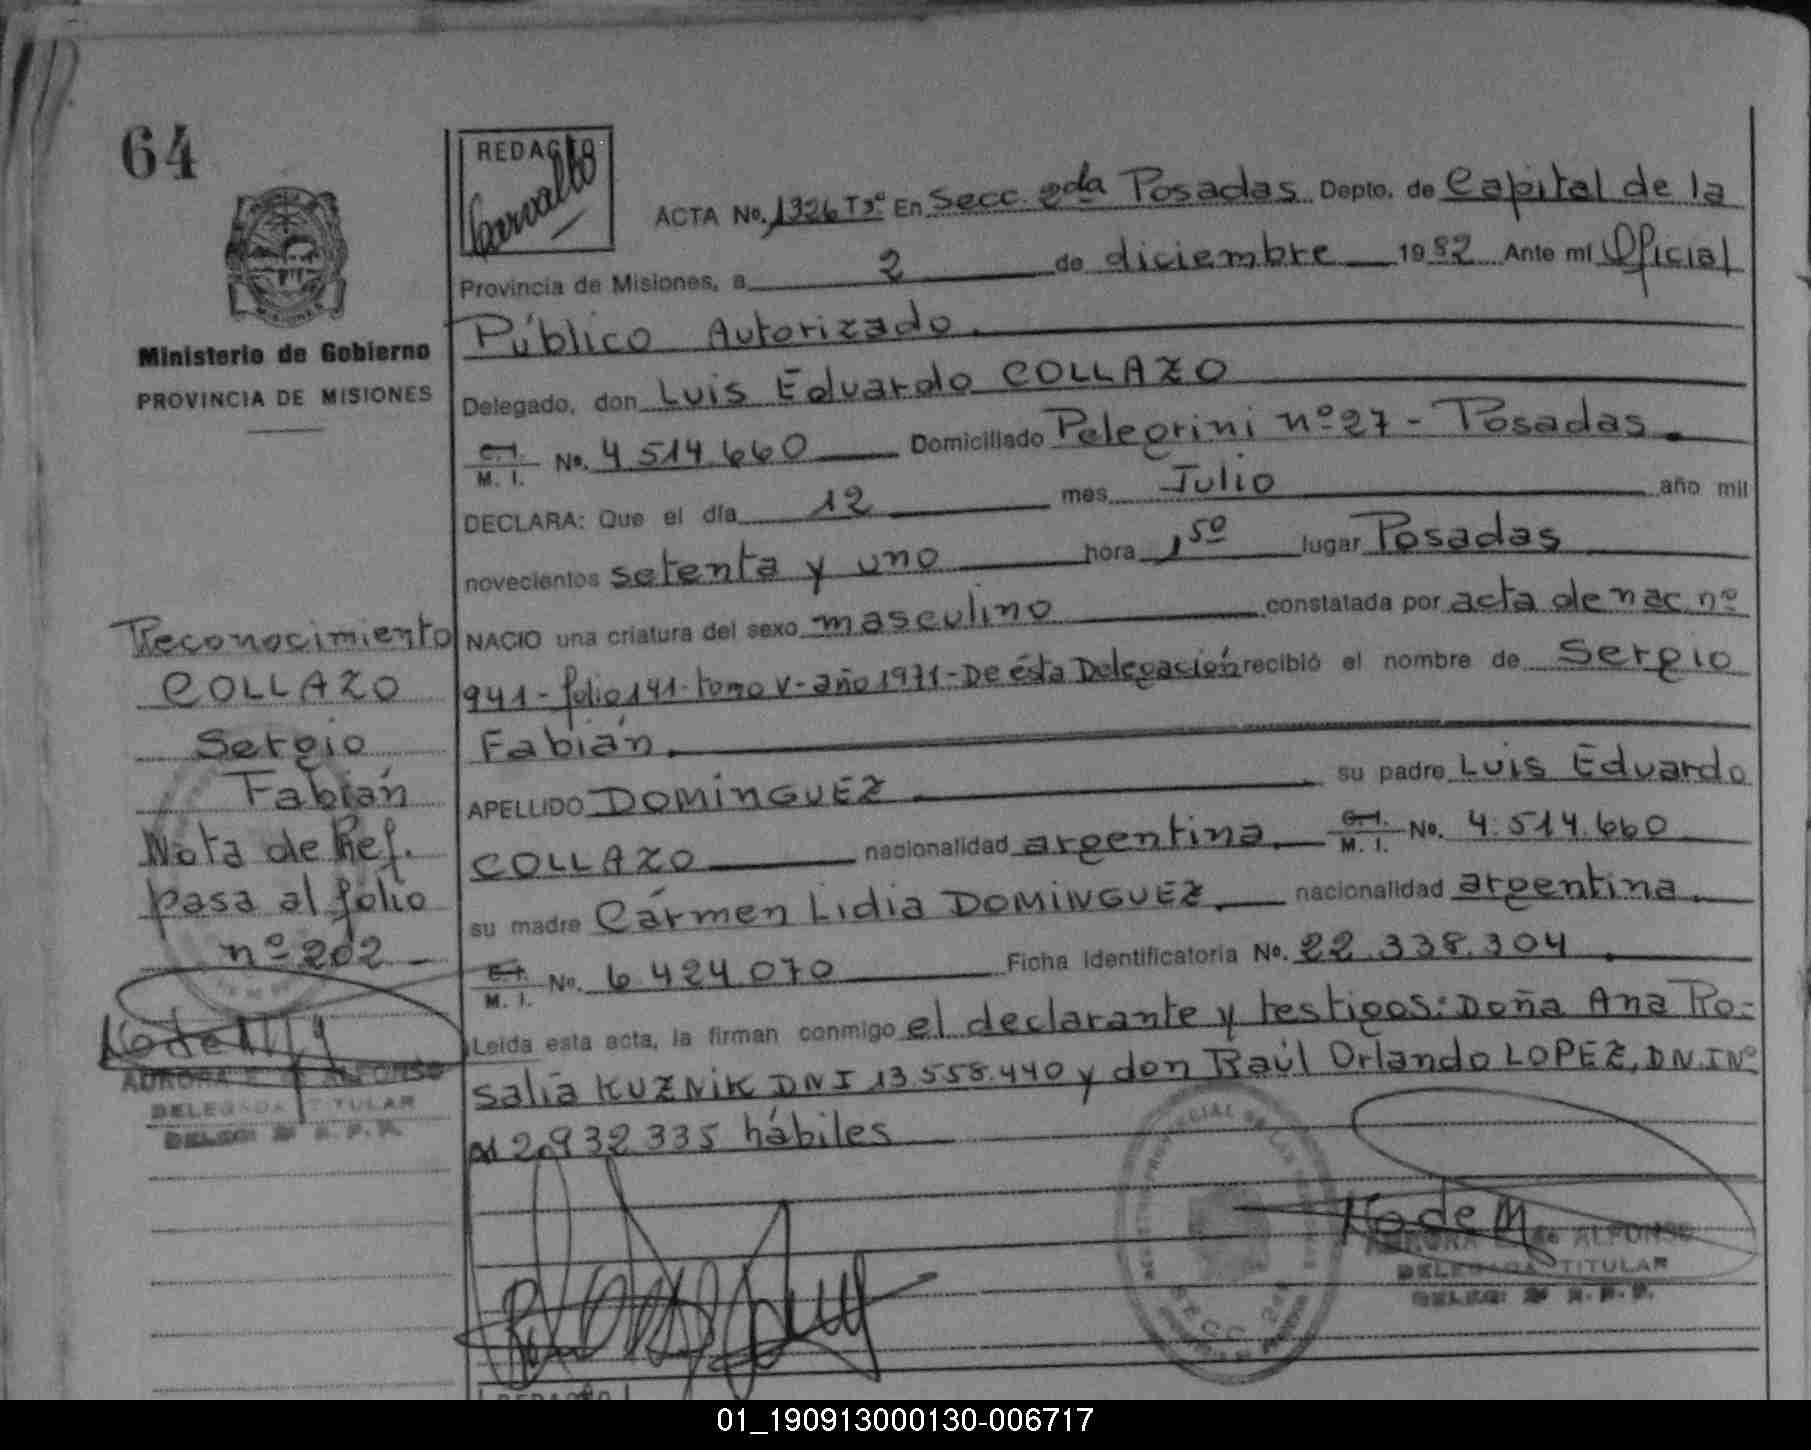 64
REDACTO
Carvallo
ACTA No. 1326 Tº 3º En Secc. 2da Posadas Depto. de Capital de la
Provincia de Misiones, a 2 de diciembre 1982 Ante mí Oficial
Público Autorizado.
Ministerio de Gobierno
PROVINCIA DE MISIONES
Delegado, don Luis Eduardo COLLAZO
C. I.
M. I. No. 4 514.660 Domiciliado Pelegrini nº 27 - Posadas.
DECLARA: Que el día 12 mes Julio año mil
novecientos setenta y uno hora 1,50 lugar Posadas
NACIO una criatura del sexo masculino constatada por acta de nac nº
941 - folio 141 - tomo V - año 1971 - De ésta Delegación recibió el nombre de Sergio
Fabián.
APELLIDO DOMINGUEZ su padre Luis Eduardo
COLLAZO nacionalidad argentina. C. I.
M. I. No. 4.514.660
su madre Cármen Lidia DOMINGUEZ. nacionalidad argentina.
C. I.
M. I. No. 6.424.070 Ficha Identificatoria No. 22.338.304.
Leída esta acta, la firman conmigo el declarante y testigos: Doña Ana Ro-
salia KUZNIK DNI 13.558.440 y don Raúl Orlando LOPEZ, D.N.I Nº
12.932.335 hábiles
Reconocimiento
COLLAZO
Sergio
Fabián
Nota de Ref.
pasa al folio
nº 202 -
AURORA E. de ALFONSO
DELEGADA TITULAR
AURORA E. de ALFONSO
DELEGADA TITULAR
SECC 2da
REDACTO
01_190913000130-006717